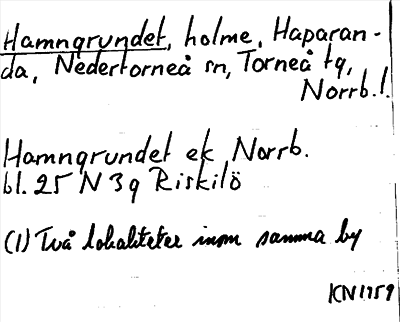 Hamngrundet, holme, Haparan-
da, Nedertorneå sn, Torneå tg,
Norrb.l.
Hamngrundet ek Norrb.
bl. 25 N 3 g Riskilö
(1) Två lokaliteter inom samma by
KN 1959